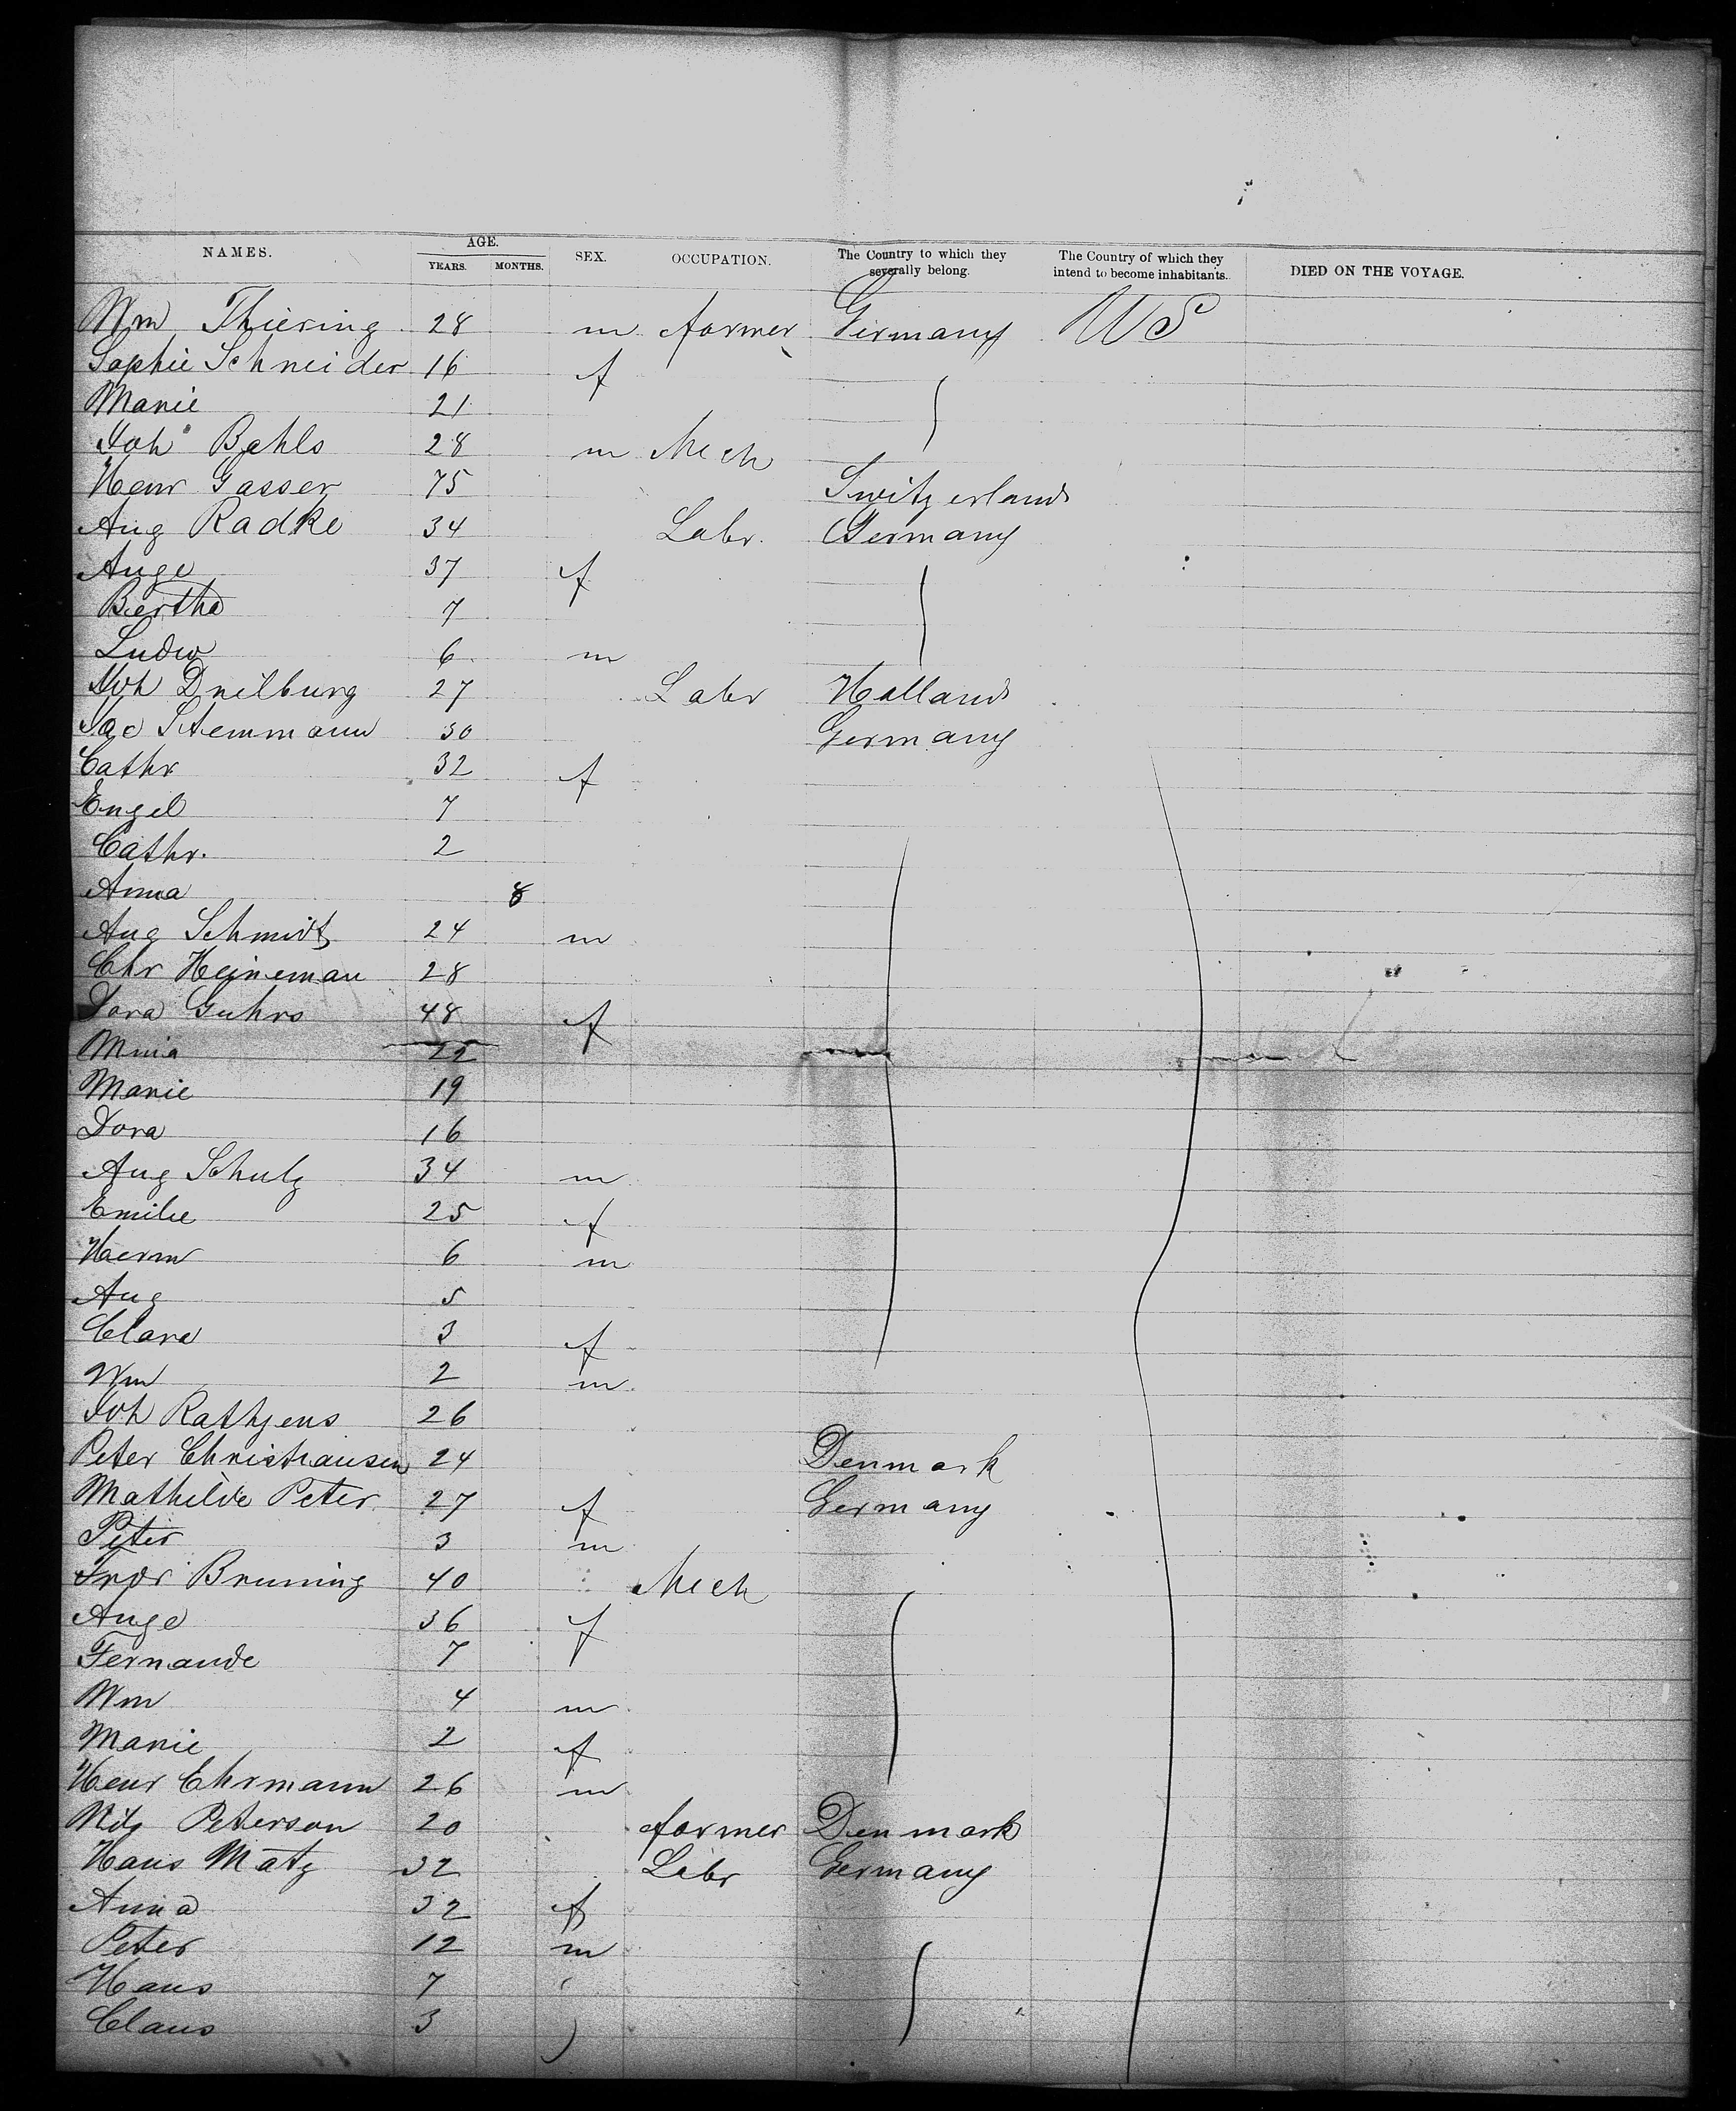 NAMES. AGE. YEARS. MONTHS. SEX. OCCUPATION. The Country to which they severally belong. The Country of which they intend to become inhabitants. DIED ON THE VOYAGE.
Wm Thiering 28 m farmer Germany US
Sophie Schneider 16 f
Marie 21
Joh Bahls 28 m Mech
Henr Gasser 75 Switzerland
Aug Radke 34 Labr. Germany
Auge 37 f
Bertha 7
Ludw 6 m
Joh 27 Labr Holland
Jac Stemmann 30 Germany
Cathr 32 f
Engel 7
Cathr. 2
Anna 8
Aug Schmidt 24 m
Chr Heineman 28
Dora Guhrs 48 f
Minia 22
Marie 19
Dora 16
Aug Schulz 34 m
Emilie 25 f
Herm 6 m
Aug 5
Clara 3 f
Wm 2 m
Joh Rathjens 26
Peter Christiansen 24 Denmark
Mathilde Peter 27 f Germany
Peter 3 m
Frdr Bruning 40 Mech
Auge 36 f
Fernande 7
Wm 4 m
Marie 2 f
Henr Ehrmann 26 m
Peterson 20 farmer Denmark
Hans Matz 32 Labr Germany
Anna 32 f
Peter 12 m
Hans 7
Claus 3